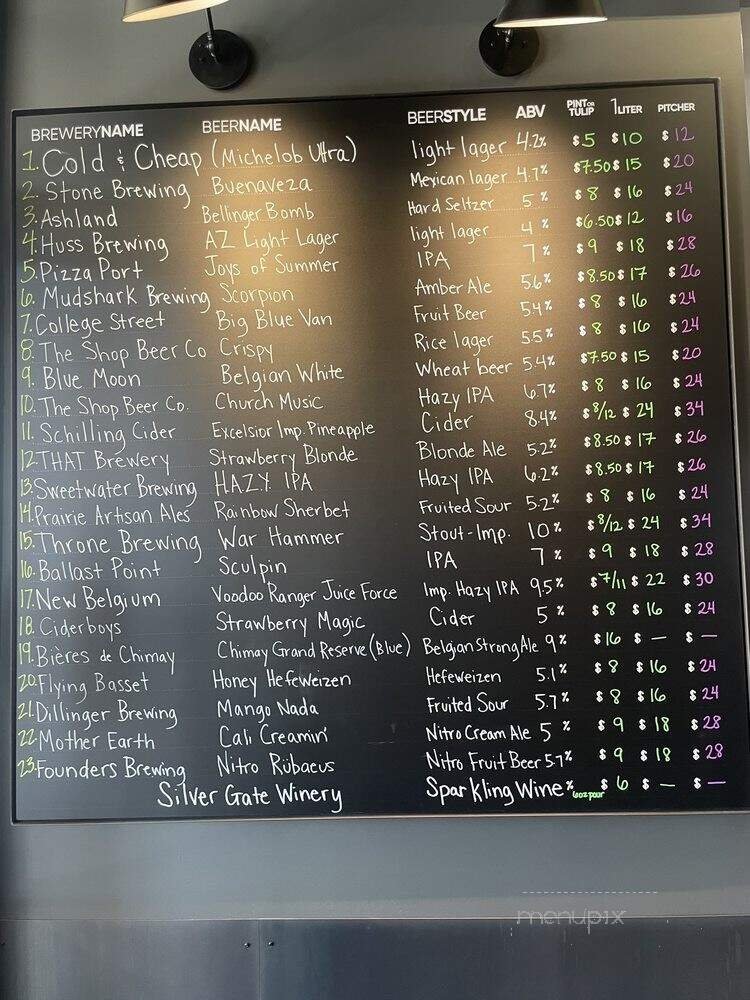 BREWERYNAME BEERNAME BEERSTYLE ABV PINT OR TULIP 1 LITER PITCHER
1. Cold & Cheap (Michelob Ultra) light lager 4.2% $5 $10 $12
2. Stone Brewing Buenaveza Mexican lager 4.7% $7.50 $15 $20
3. Ashland Bellinger Bomb Hard Seltzer 5% $8 $16 $24
4. Huss Brewing AZ Light Lager light lager 4% $6.50 $12 $16
5. Pizza Port Joys of Summer IPA 7% $9 $18 $28
6. Mudshark Brewing Scorpion Amber Ale 5.6% $8.50 $17 $26
7. College Street Big Blue Van Fruit Beer 5.4% $8 $16 $24
8. The Shop Beer Co Crispy Rice lager 5.5% $8 $16 $24
9. Blue Moon Belgian White Wheat beer 5.4% $7.50 $15 $20
10. The Shop Beer Co. Church Music Hazy IPA 6.7% $8 $16 $24
11. Schilling Cider Excelsior Imp. Pineapple Cider 8.4% $8/12 $24 $34
12. THAT Brewery Strawberry Blonde Blonde Ale 5.2% $8.50 $17 $26
13. Sweetwater Brewing HAZY IPA Hazy IPA 6.2% $8.50 $17 $26
14. Prairie Artisan Ales Rainbow Sherbet Fruited Sour 5.2% $8 $16 $24
15. Throne Brewing War Hammer Stout-Imp. 10% $8/12 $24 $34
16. Ballast Point Sculpin IPA 7% $9 $18 $28
17. New Belgium Voodoo Ranger Juice Force Imp. Hazy IPA 9.5% $7/11 $22 $30
18. Ciderboys Strawberry Magic Cider 5% $8 $16 $24
19. Bières de Chimay Chimay Grand Reserve (Blue) Belgian Strong Ale 9% $16 $ — $ —
20. Flying Basset Honey Hefeweizen Hefeweizen 5.1% $8 $16 $24
21. Dillinger Brewing Mango Nada Fruited Sour 5.7% $8 $16 $24
22. Mother Earth Cali Creamin' Nitro Cream Ale 5% $9 $18 $28
23. Founders Brewing Nitro Rübaeus Nitro Fruit Beer 5.7% $9 $18 $28
Silver Gate Winery Sparkling Wine % 6oz pour $6 $ — $ —
menupix